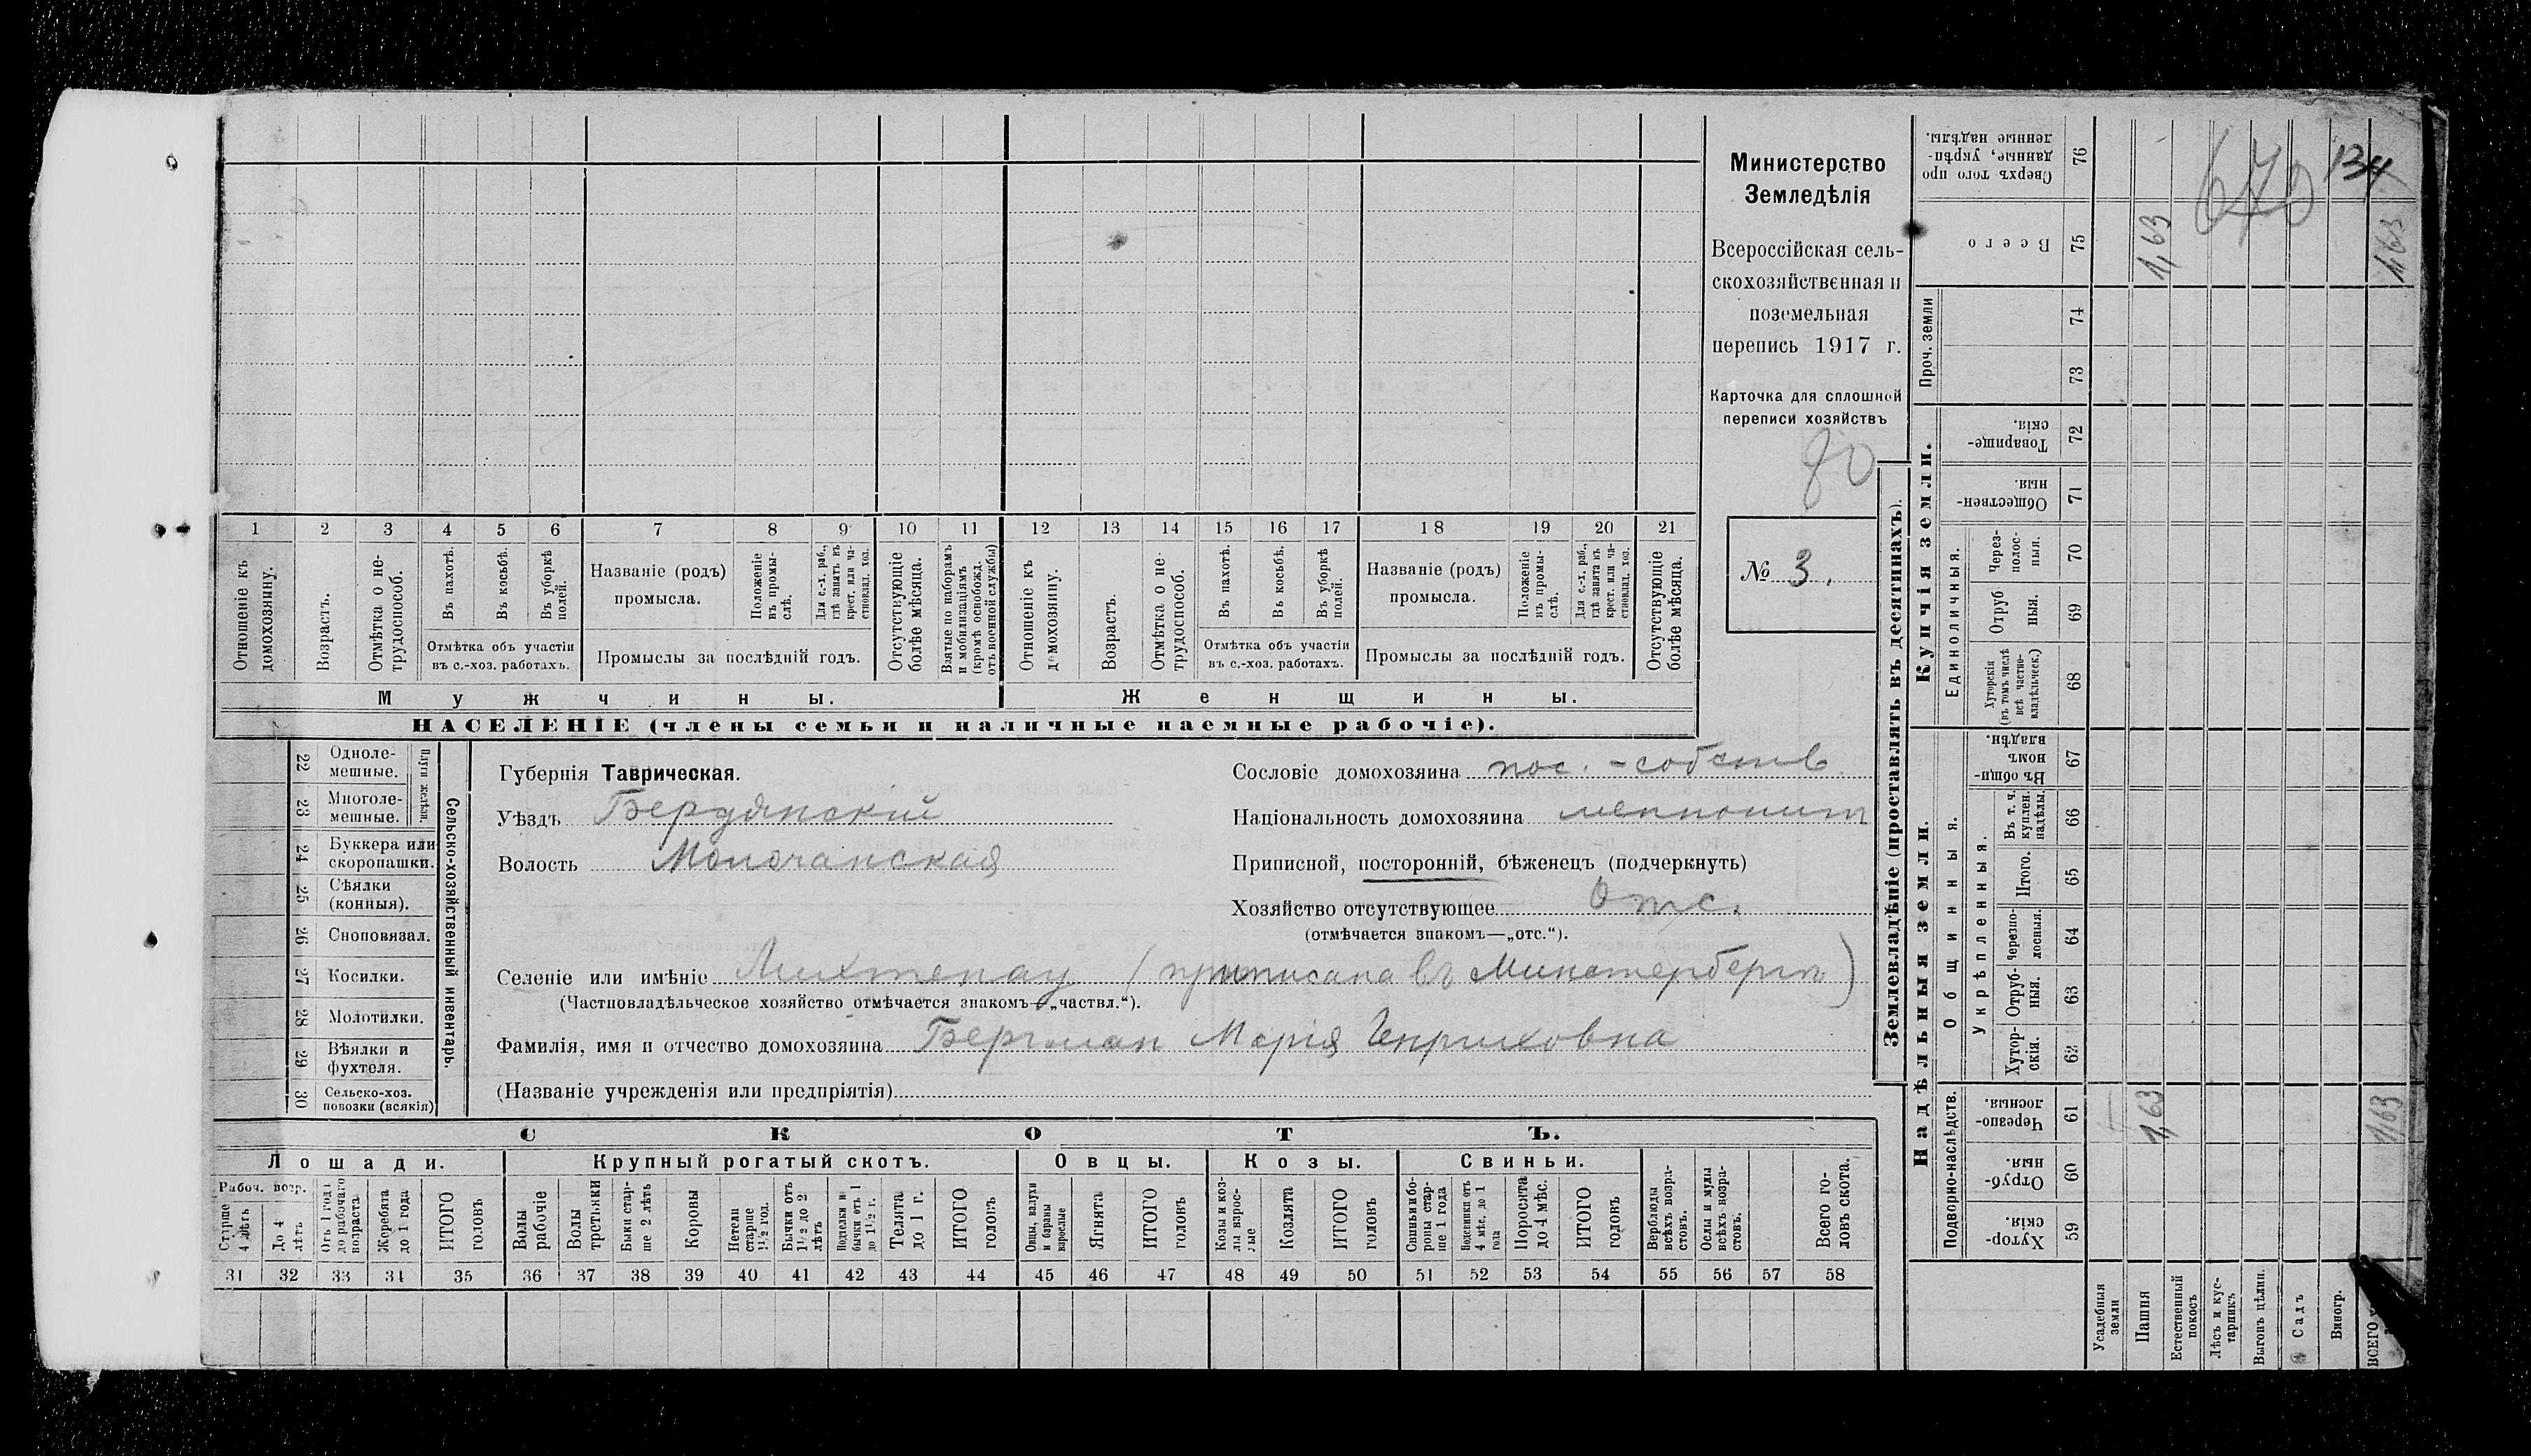 Министерство
Земледѣлія
Всероссійская сель-
скохозяйственная и
поземельная
перепись 1917 г.
Карточка для сплошной
переписи хозяйствъ
80
№ 3.
1 2 3 4 5 6 7 8 9 10 11 12 13 14 15 16 17 18 19 20 21
Отношеніе къ домохозяину.
Возрастъ.
Отмѣтка о не-трудоспособ.
Въ пахотѣ.
Въ косьбѣ.
Въ уборкѣ полей.
Отмѣтка объ участіи въ с.-хоз. работахъ.
Названіе (родъ) промысла.
Положеніе въ промы-слѣ.
Для с.-х. раб., гдѣ занятъ въ крест. или ча-стновлад. хоз.
Промыслы за послѣдній годъ.
Отсутствующіе болѣе мѣсяца.
Взятые по наборамъ и мобилизаціямъ (кромѣ освобожд. отъ военной службы)
Отношеніе къ домохозяину.
Возрастъ.
Отмѣтка о не-трудоспособ.
Въ пахотѣ.
Въ косьбѣ.
Въ уборкѣ полей.
Отмѣтка объ участіи въ с.-хоз. работахъ.
Названіе (родъ) промысла.
Положеніе въ промы-слѣ.
Для с.-х. раб., гдѣ занята въ крест. или ча-стновлад. хоз.
Промыслы за послѣдній годъ.
Отсутствующіе болѣе мѣсяца.
Мужчины.
Женщины.
НАСЕЛЕНІЕ (члены семьи и наличные наемные рабочіе).
Сельско-хозяйственный инвентарь.
Плуги желѣзн.
22 Одноле-мешные.
23 Многоле-мешные.
24 Буккера или скоропашки.
25 Сѣялки (конныя).
26 Сноповязал.
27 Косилки.
28 Молотилки.
29 Вѣялки и фухтеля.
30 Сельско-хоз. повозки (всякія)
Губернія Таврическая.
Уѣздъ Бердянскій
Волость Молочанская
Сословіе домохозяина пос. - собств.
Національность домохозяина меннонит
Приписной, посторонній, бѣженецъ (подчеркнуть)
Хозяйство отсутствующее Отс.
(отмѣчается знакомъ—„отс.“).
Селеніе или имѣніе Лихтенау (приписана въ Минстерберг)
(Частновладѣльческое хозяйство отмѣчается знакомъ—„частвл.“).
Фамилія, имя и отчество домохозяина Бергман Марія Генриховна
(Названіе учрежденія или предпріятія)
СКОТЪ.
Лошади. Крупный рогатый скотъ. Овцы. Козы. Свиньи.
Рабоч. возр.
Старше 4 лѣтъ
До 4 лѣтъ
Отъ 1 года до рабочаго возраста
Жеребята до 1 года
ИТОГО головъ
Волы рабочіе
Волы третьяки
Быки стар-ше 2 лѣтъ
Коровы
Нетели старше 1½ год.
Бычки отъ 1½ до 2 лѣтъ
Подтелки и бычки отъ 1 до 1½ г.
Телята до 1 г.
ИТОГО головъ
Овцы, валухи и бараны взрослые
Ягнята
ИТОГО головъ
Козы и коз-лы взрос-лые
Козлята
ИТОГО головъ
Свиньи и бо-ровы стар-ше 1 года
Подсвинки отъ 4 мѣс. до 1 года
Поросята до 4 мѣс.
ИТОГО головъ
Верблюды всѣхъ возра-стовъ.
Ослы и мулы всѣхъ возра-стовъ.
Всего го-ловъ скота.
31 32 33 34 35 36 37 38 39 40 41 42 43 44 45 46 47 48 49 50 51 52 53 54 55 56 57 58
Землевладѣніе (проставлять въ десятинахъ).
Надѣльныя земли.
Купчія земли.
Проч. земли
Подворно-наслѣдств.
Общинныя.
Укрѣпленныя.
Единоличныя.
Сверхъ того про данные, укрѣп-ленные надѣлы. 76
Всего 75
74
73
Товарище-скія. 72
Обществен-ныя. 71
Через-полос-ныя. 70
Отруб ныя. 69
Хуторскія (въ томъ числѣ всѣ частно-владѣльческ.) 68
Въ общин-номъ владѣн. 67
Въ т. ч. куплен. надѣлы. 66
Итого. 65
Черезпо-лосныя. 64
Отруб-ныя. 63
Хутор-скія. 62
Черезпо-лосныя. 61
Отруб-ныя. 60
Хутор-скія. 59
Усадебныя земли
Пашня
Естественный покосъ
Лѣсъ и кус-тарникъ
Выгонъ цѣлин.
Садъ
Виногр.
ВСЕГО
1,63
1,63
1,63
1,63
670
134